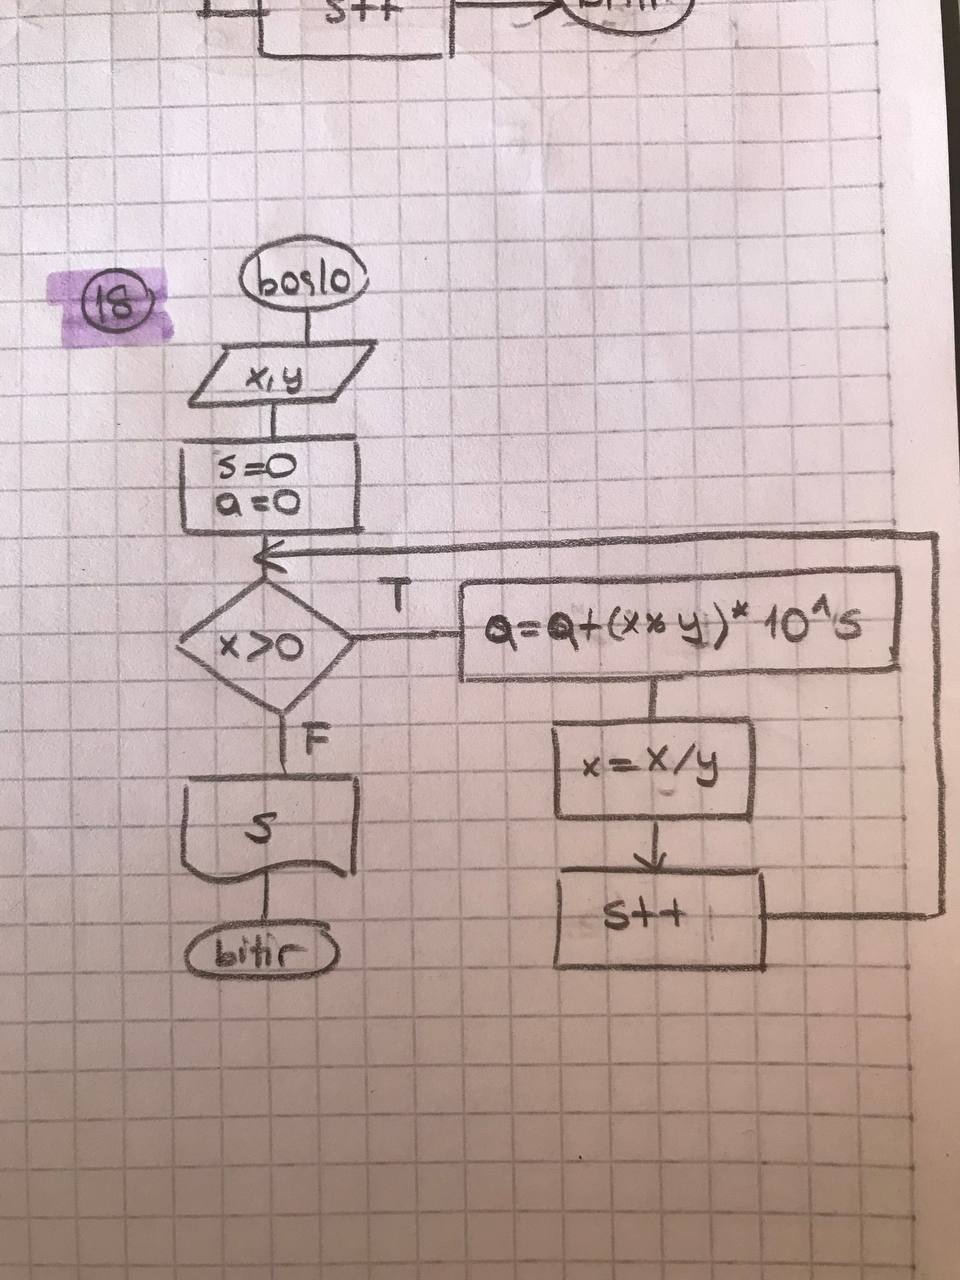 s++
bitir
18
başla
x, y
s=0
a=0
x>0
T
a=a+(x%y)*10^s
F
x=x/y
s
s++
bitir